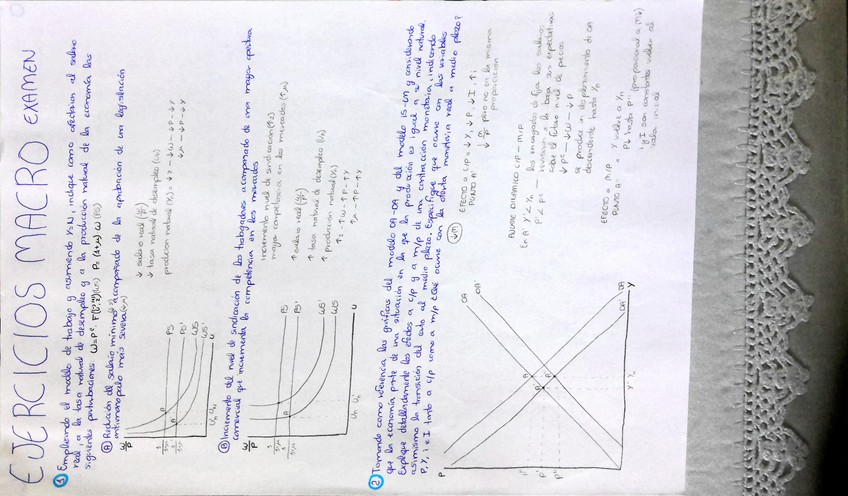 EJERCICIOS MACRO EXAMEN
① Empleando el modelo de trabajo y asumiendo Y=N, indique como afectarían al salario
real, a la tasa natural de desempleo y a la producción natural de la economía las
siguientes perturbaciones W=Pe.F(u,z) P=(1+μ)W (PS)
Ⓐ Reducción del salario mínimo acompañado de la aprobación de una legislación
antimonopolio más severa (↓μ)
↓ salario real
↓ tasa natural de desempleo (un)
producción natural (Yn)
W/P
PS'
PS
WS
WS'
u
Ⓑ Incremento del nivel de sindicación de los trabajadores acompañado de una mayor apertura
comercial que incrementa la competencia en los mercados
Incremento nivel de sindicación (↑z)
mayor competencia en los mercados
↑ salario real
↑ tasa natural de desempleo (un)
↑ producción natural (Yn)
W/P
PS'
PS
WS'
WS
u
② Tomando como referencia las gráficas del modelo OA-DA y del modelo IS-LM y considerando
que la economía parte de una situación en la que la producción es igual a su nivel natural.
Explique detalladamente los efectos a c/p y a m/p de una contracción monetaria, indicando
asimismo la transición del corto al medio plazo. Especifique que ocurre con las variables
P, Y, i e I tanto a c/p como a m/p ¿Qué ocurre con la oferta monetaria real a medio plazo?
↓M
EFECTO a C/P = ↓Y, ↓P, ↓I ↑i
PUNTO A'
pero no en la misma
proporción
AJUSTE DINÁMICO C/P - M/P
En A' Y'<Yn
P'<Pe
los encargados de fijar los salarios
revisaran a la baja sus expectativas
sobre el futuro nivel de precios
↓Pe - ↓W - ↓P
se produce un desplazamiento de OA
descendente hasta Yn
EFECTO a M/P
PUNTO A'' = Y vuelve a Yn
P↓ hasta P'' (proporcional a M↓)
i y I sin cambios vuelven al
valor inicial
P
OA
OA'
DA
DA'
A
A'
A''
P'
P''
Y' Yn
Y